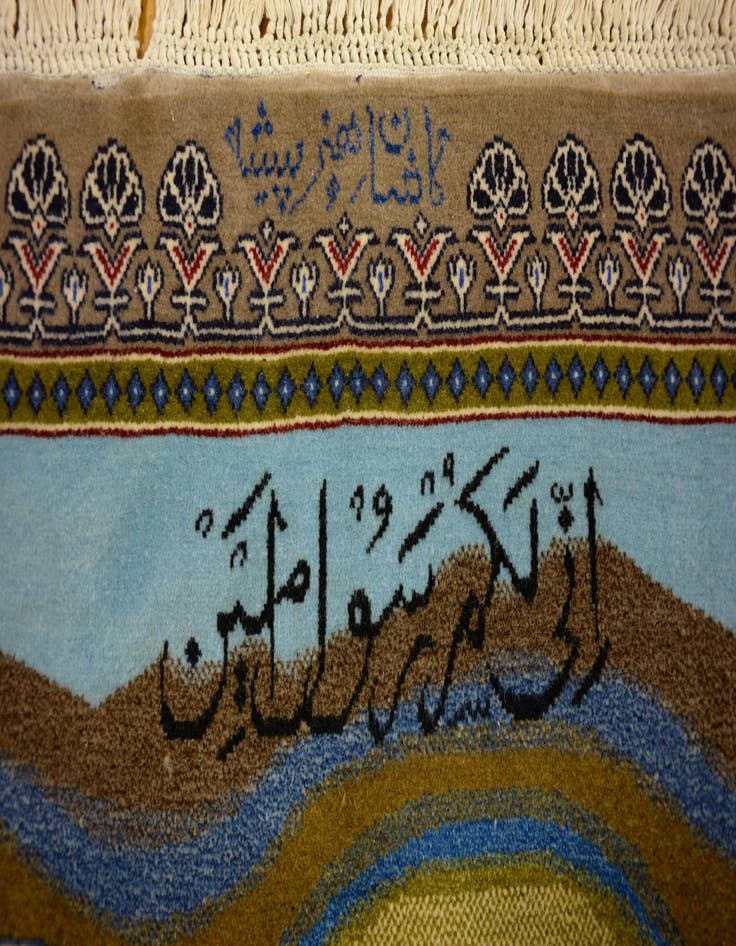 کاشان هنر پیشه
اِنّی لَکُمْ رَسُولٌ اَمینٌ